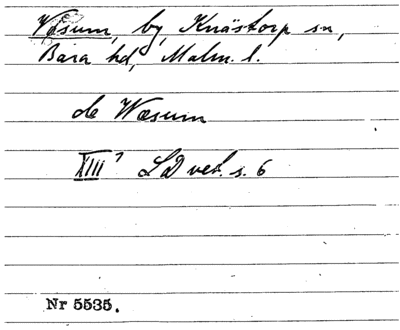 Wæsum, by, Knästorp sn,
Bara hd, Malm. l.
de Wæsum
XIII² LD vet. s. 6
Nr 5535.